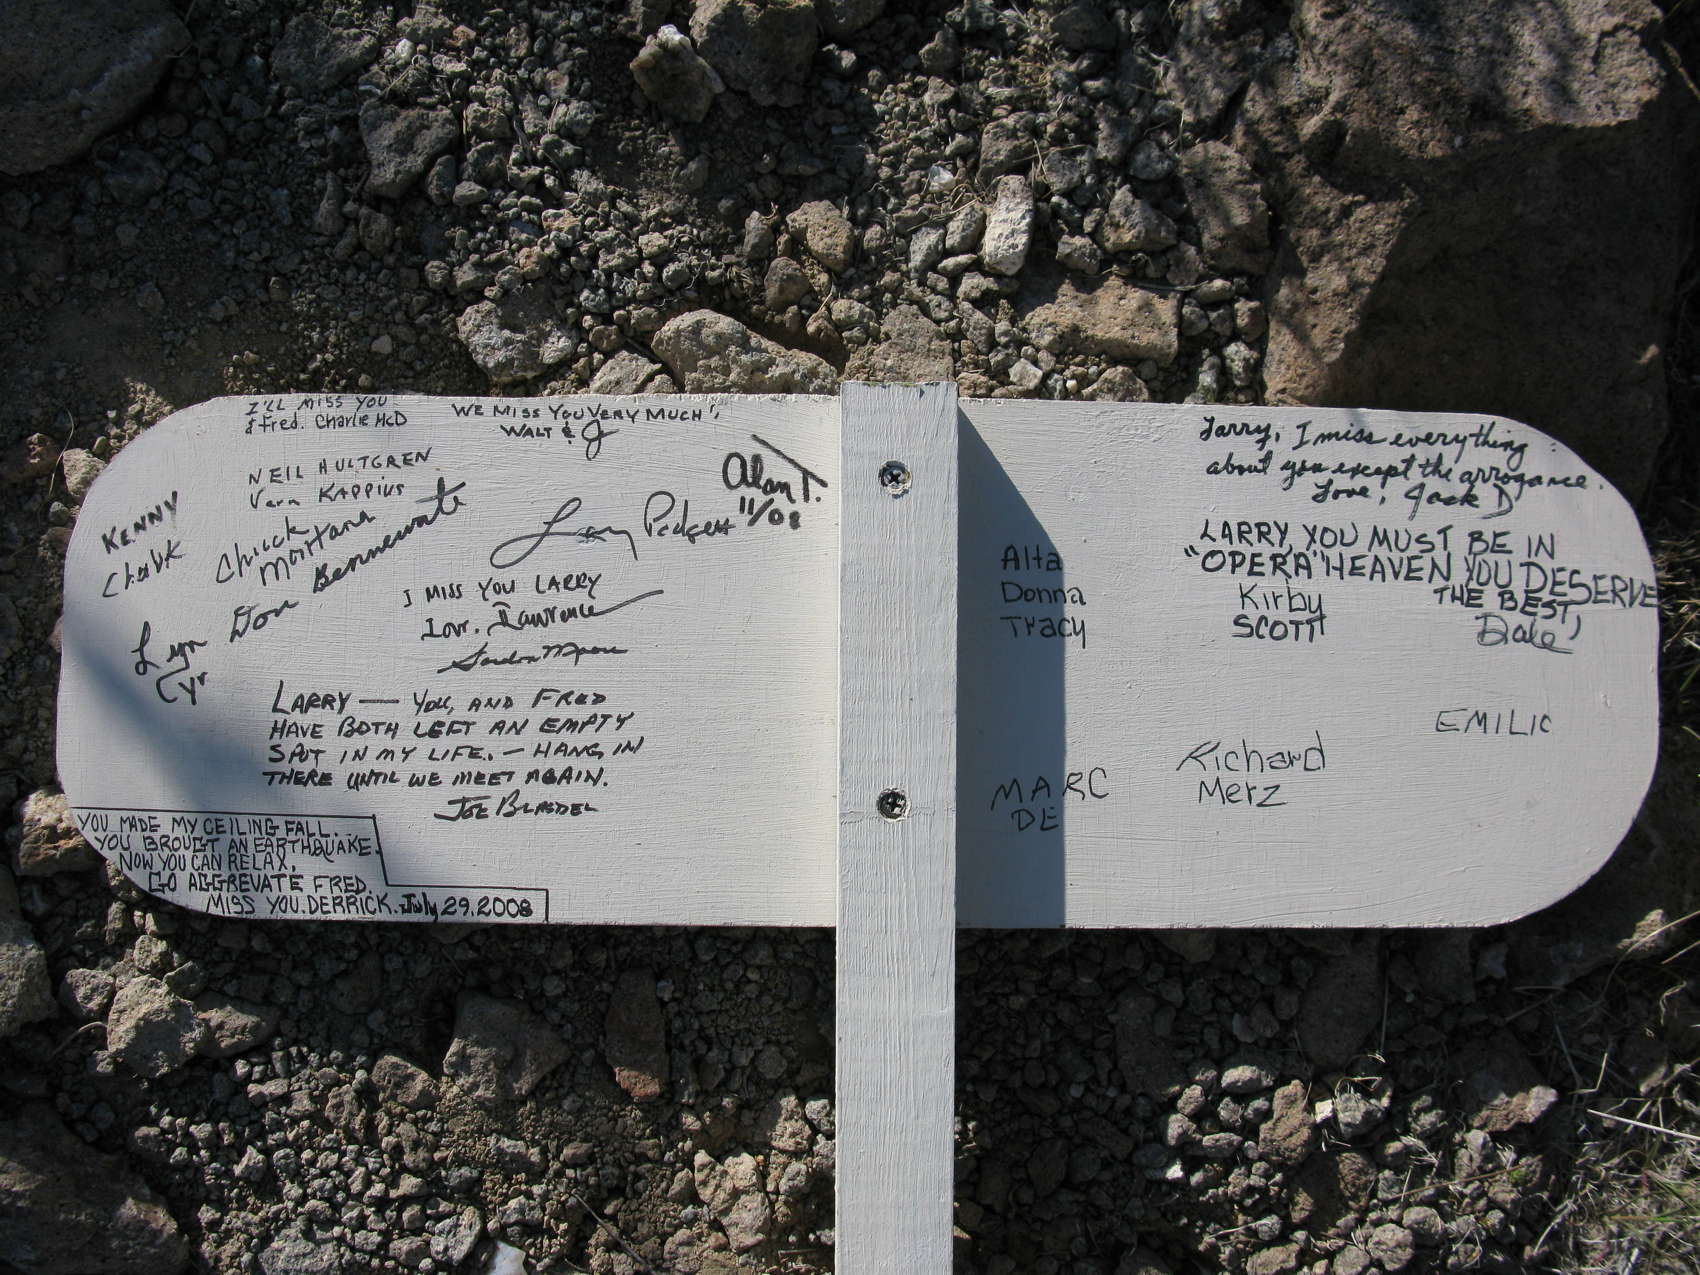 I'LL MISS YOU
& Fred. Charlie McD
WE MISS YOU VERY MUCH!,
WALT & J
NEIL HULTGREN
Vern KAPPIUS
KENNY
Chuck
Montana
Don Bennewate
Lyn
Alan T.
11/08
Larry Padgett
I MISS YOU LARRY
Love. Lawrence
Gordon Moore
LARRY — YOU, AND FRED
HAVE BOTH LEFT AN EMPTY
SPOT IN MY LIFE. – HANG IN
THERE UNTIL WE MEET AGAIN.
JOE BLASDEL
YOU MADE MY CEILING FALL.
YOU BROUGT AN EARTHQUAKE.
NOW YOU CAN RELAX.
GO AGGREVATE FRED.
MISS YOU. DERRICK. July 29. 2008
Larry, I miss everything
about you except the arrogance.
Love, Jack D
LARRY, YOU MUST BE IN
"OPERA" HEAVEN YOU DESERVE
THE BEST,
Dale
Alta
Donna
Tracy
Kirby
SCOTT
EMILIO
Richard
Merz
MARC
DE